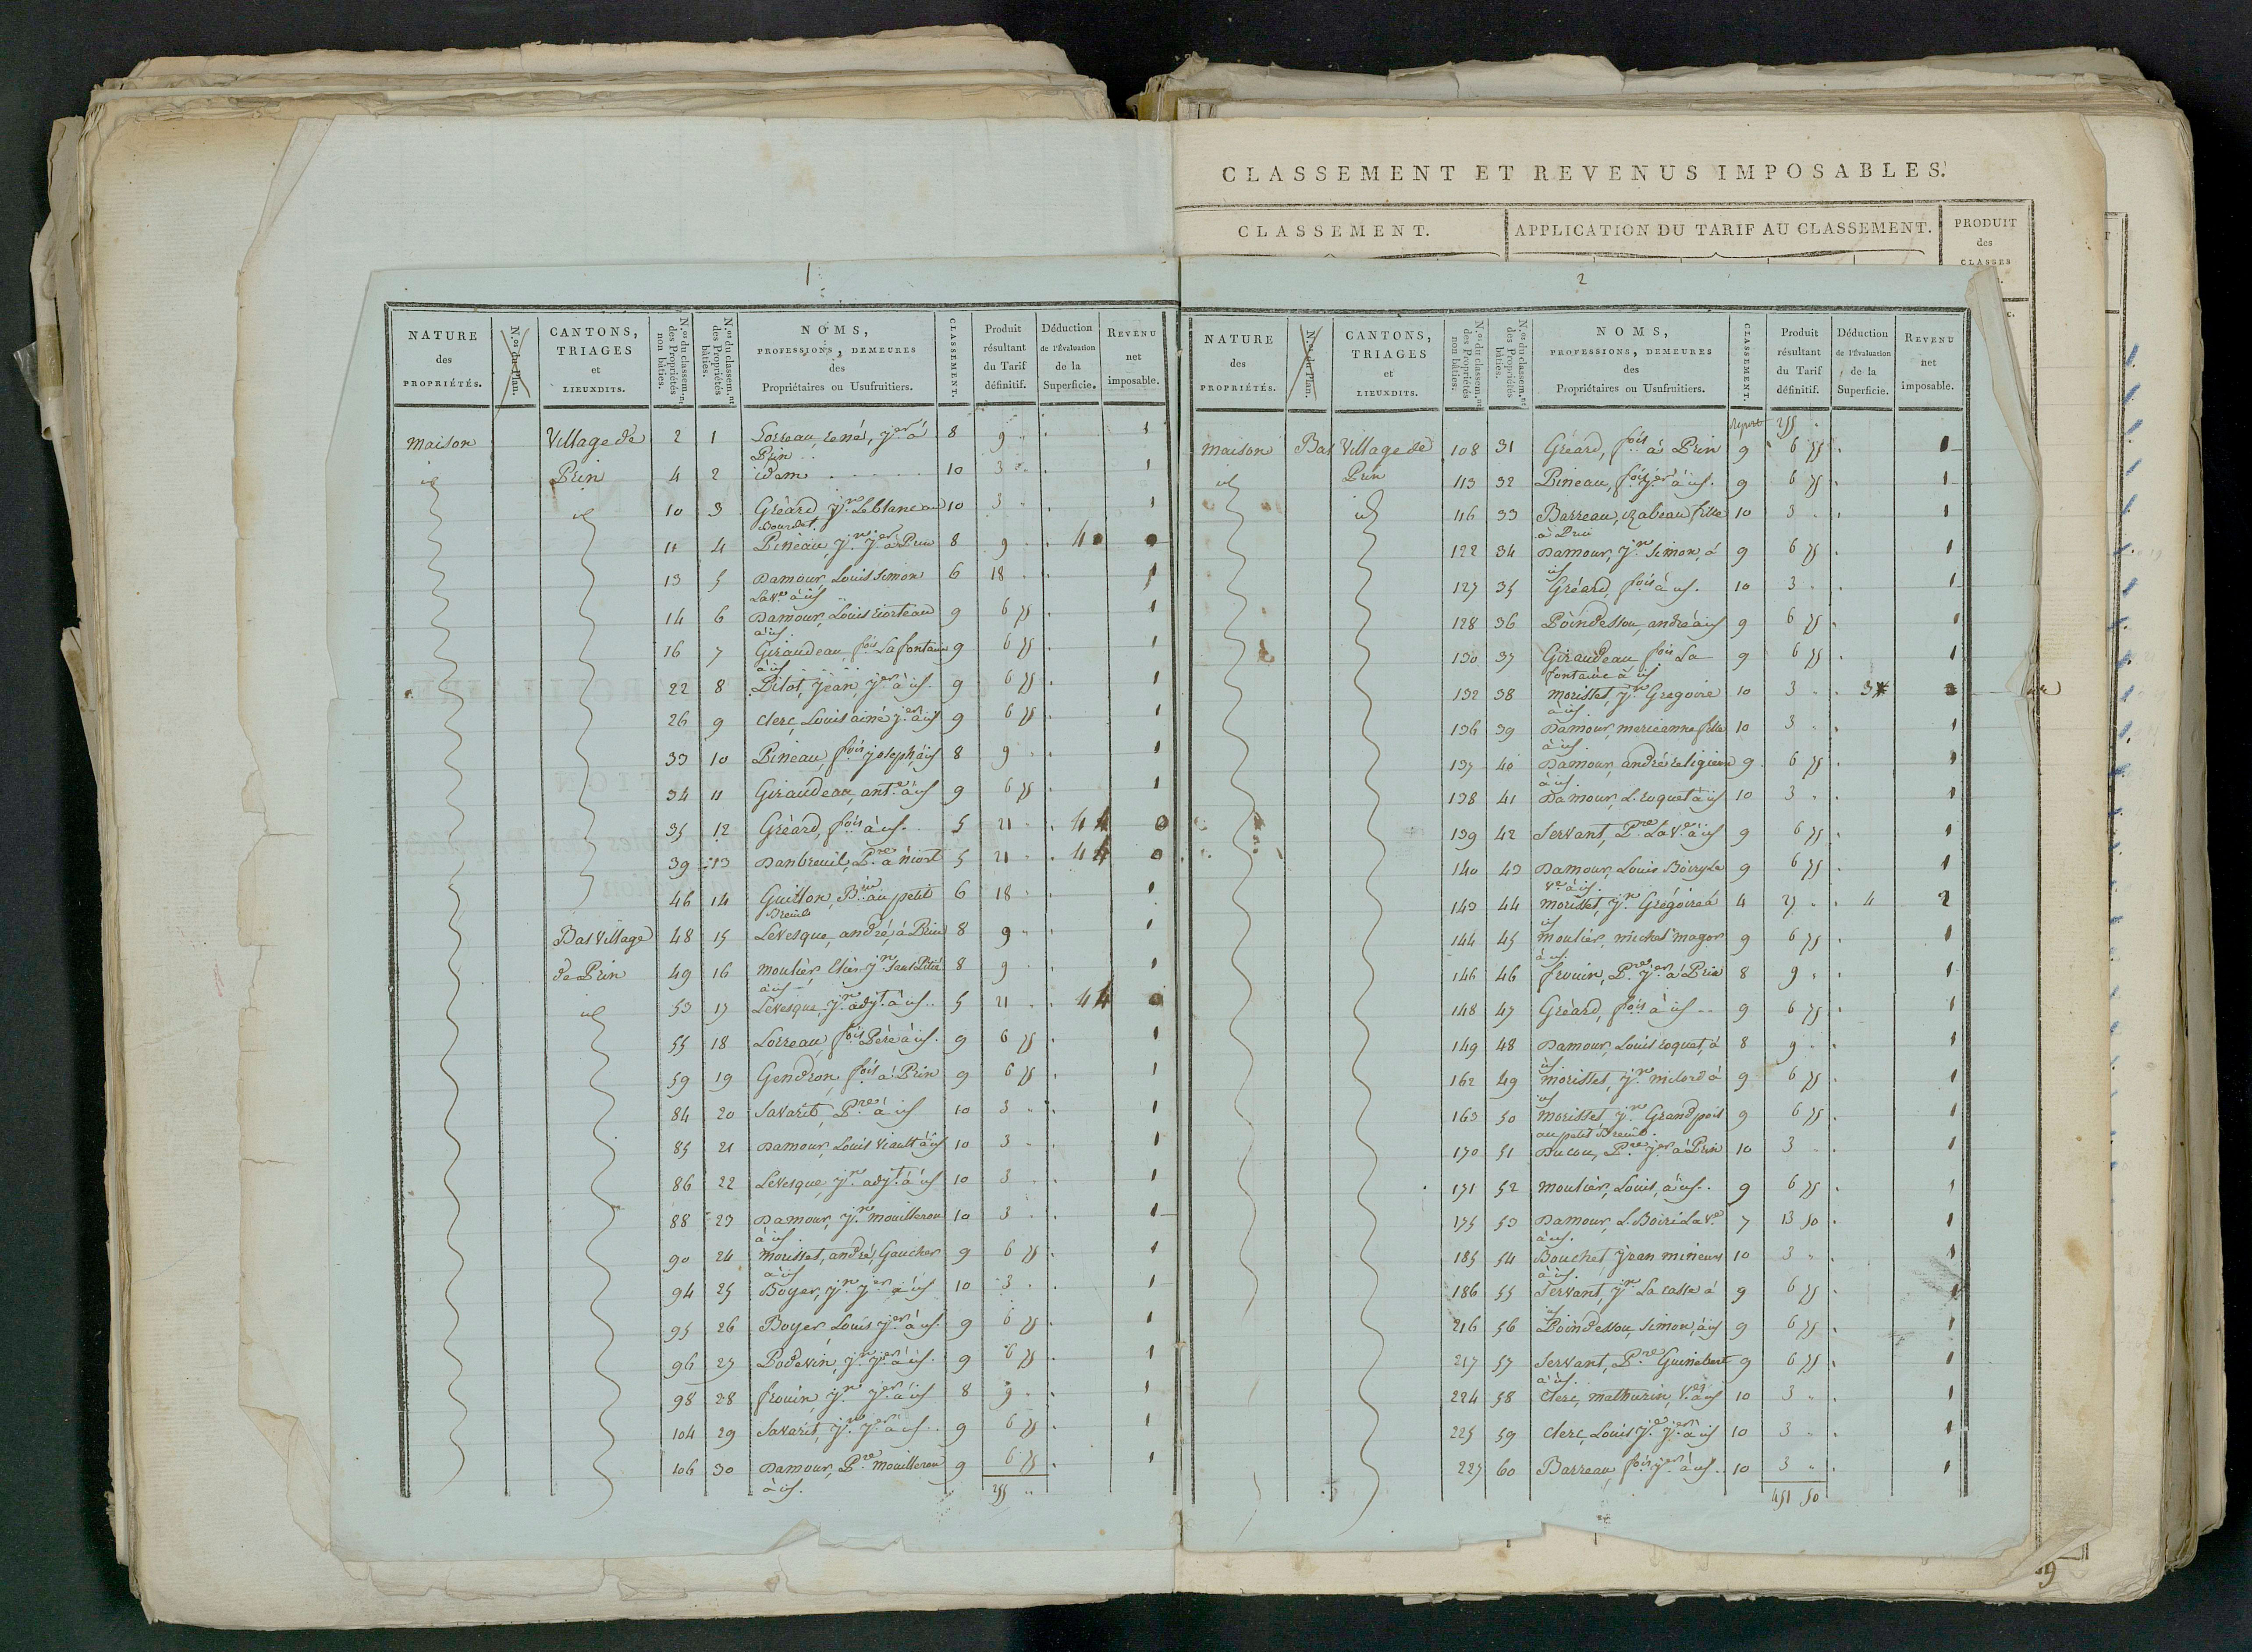 CLASSEMENT ET REVENUS IMPOSABLES.
CLASSEMENT. APPLICATION DU TARIF AU CLASSEMENT. PRODUIT
des
CLASSES
1
NATURE des PROPRIÉTÉS. N.os du Plan. CANTONS, TRIAGES et LIEUXDITS. N.os du classem.nt des Propriétés non bâties. N.os du classem.nt des Propriétés bâties. NOMS, PROFESSIONS, DEMEURES des Propriétaires ou Usufruitiers. CLASSEMENT. Produit résultant du Tarif définitif. Déduction de l'Évaluation de la Superficie. REVENU net imposable.
maison Village de 2 1 Lorreau, rené, j.er à 8 9 " 1
Prin
id Prin 4 2 idem 10 3 " 1
id 10 3 Gréard j.n Leblanc au 10 3 " 1
Bourdet.
11 4 Pineau, j.n j.er à Prin 8 9
13 5 Damour, Louis Simon 6 18
La v.e à id
14 6 Damour, Louis riorteau 9 6 75 1
à id.
16 7 Giraudeau f.ois Lafontaine 9 6 75 1
à id
22 8 Pilot, jean, j.er à id. 9 6 75 1
26 9 Clerc, Louis ainé j.er à id 9 6 75 1
33 10 Pineau, f.ois joseph, à id 8 9 1
34 11 Giraudeau, ant.e à id 9 6 75 1
35 12 Gréard, f.ois à id. 5 21 0
39 13 Danbreuil, P.re à niort 5 21 0
46 14 Guillon, B.in au petit 6 18 1
Breuil
Bas Village 48 15 Levesque, andré, à Prin 8 9 1
de Prin 49 16 moulier, j.n 8 9 1
à id
id 53 17 Levesque, j.n adj.t à id. 5 21
55 18 Lorreau, f.ois Père à id. 9 6 75 1
59 19 Gendron, f.ois à Prin 9 6 75 1
84 20 Savarit, P.re à id 10 3 " 1
85 21 Damour, Louis viault à id 10 3 1
86 22 Levesque, j.n adj.t à id 10 3 1
88 23 Damour, j.n mouilleron 10 3 1
à id.
90 24 morisset, andré, Gaucher 9 6 75 1
à id
94 25 Boyer, j.n j.er à id 10 3 1
95 26 Boyer Louis j.er à id. 9 6 75 1
96 27 Podevin, j.n j.er à id. 9 6 75 1
98 28 frouin, j.n j.er à id 8 9 1
104 29 Savarit, j.n j.er à id. 9 6 75 1
106 30 Damour, P.re mouilleron 9 6 75 1
à id.
255 "
2
NATURE des PROPRIÉTÉS. N.os du Plan. CANTONS, TRIAGES et LIEUXDITS. N.os du classem.nt des Propriétés non bâties. N.os du classem.nt des Propriétés bâties. NOMS, PROFESSIONS, DEMEURES des Propriétaires ou Usufruitiers. CLASSEMENT. Produit résultant du Tarif définitif. Déduction de l'Évaluation de la Superficie. REVENU net imposable.
report 255
maison Bas Village de 108 31 Gréard, f.ois à Prin 9 6 75 1
id Prin 113 32 Pineau, f.ois j.er à id. 9 6 75 1
id 116 33 Barreau, izabeau fille 10 3 1
à Prin
122 34 Damour, j.n Simon, à 9 6 75 1
id
127 35 Gréard, f.ois à id. 10 3 1
128 36 Poindessou, andré à id 9 6 75 1
130 37 Giraudeau f.ois La 9 6 75 1
fontaine à id
132 38 morisset, j.n Gregoire 10 3
à id
136 39 Damour, marieanne fille 10 3 1
à id.
137 40 Damour, andré religieux 9 6 75 1
à id.
138 41 Damour, L. roquet à id 10 3 1
139 42 Servant, P.re La v.e à id 9 6 75 1
140 43 Damour, Louis Boiry La 9 6 75 1
v.e à id.
143 44 morisset, j.n Grégoire à 4 27 4 2
id
144 45 moulier, michel magor 9 6 75 1
à id.
146 46 frouin, P.re j.er à Prin 8 9 1
148 47 Gréard, f.ois à id 9 6 75 1
149 48 Damour, Louis roquet, à 8 9 1
id
162 49 morisset, j.n milord à 9 6 75 1
id
163 50 morisset, j.n Grandpoil 9 6 75 1
au petit Breuil.
170 51 Ducou, P.re j.er à Prin 10 3 1
171 52 moulier, Louis, à id. 9 6 75 1
175 53 Damour, L. Boiri La v.e 7 13 50 1
à id.
185 54 Bouchet jean mineurs 10 3 1
à id.
186 55 Servant, j.n La casse à 9 6 75 1
id
216 56 Poindessou, Simon, à id 9 6 75 1
217 57 Servant, P.re Guinebert 9 6 75 1
à id.
224 58 Clerc, mathurin, à id 10 3 1
225 59 Clerc, Louis j.n j.er à id 10 3 1
227 60 Barreau, f.ois j.er à id. 10 3 " 1
451 50